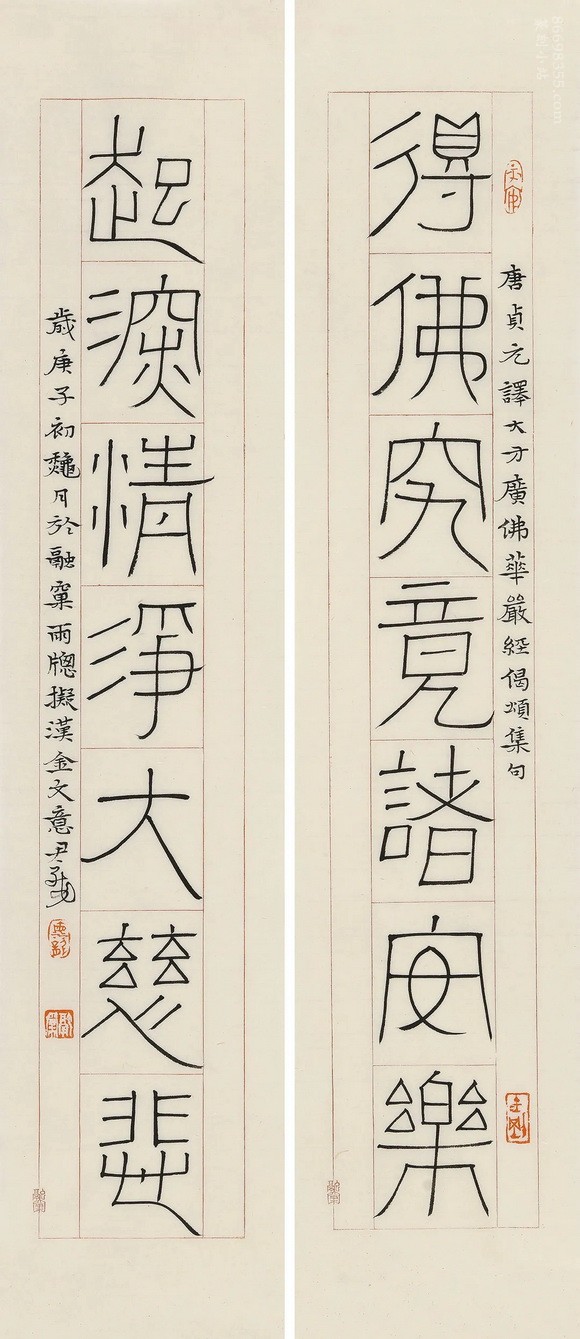 唐貞元譯大方廣佛華嚴經偈頌集句
得佛究竟諸安樂
起深清淨大慈悲
歲庚子初龝月於融窠雨牕擬漢金文意尹